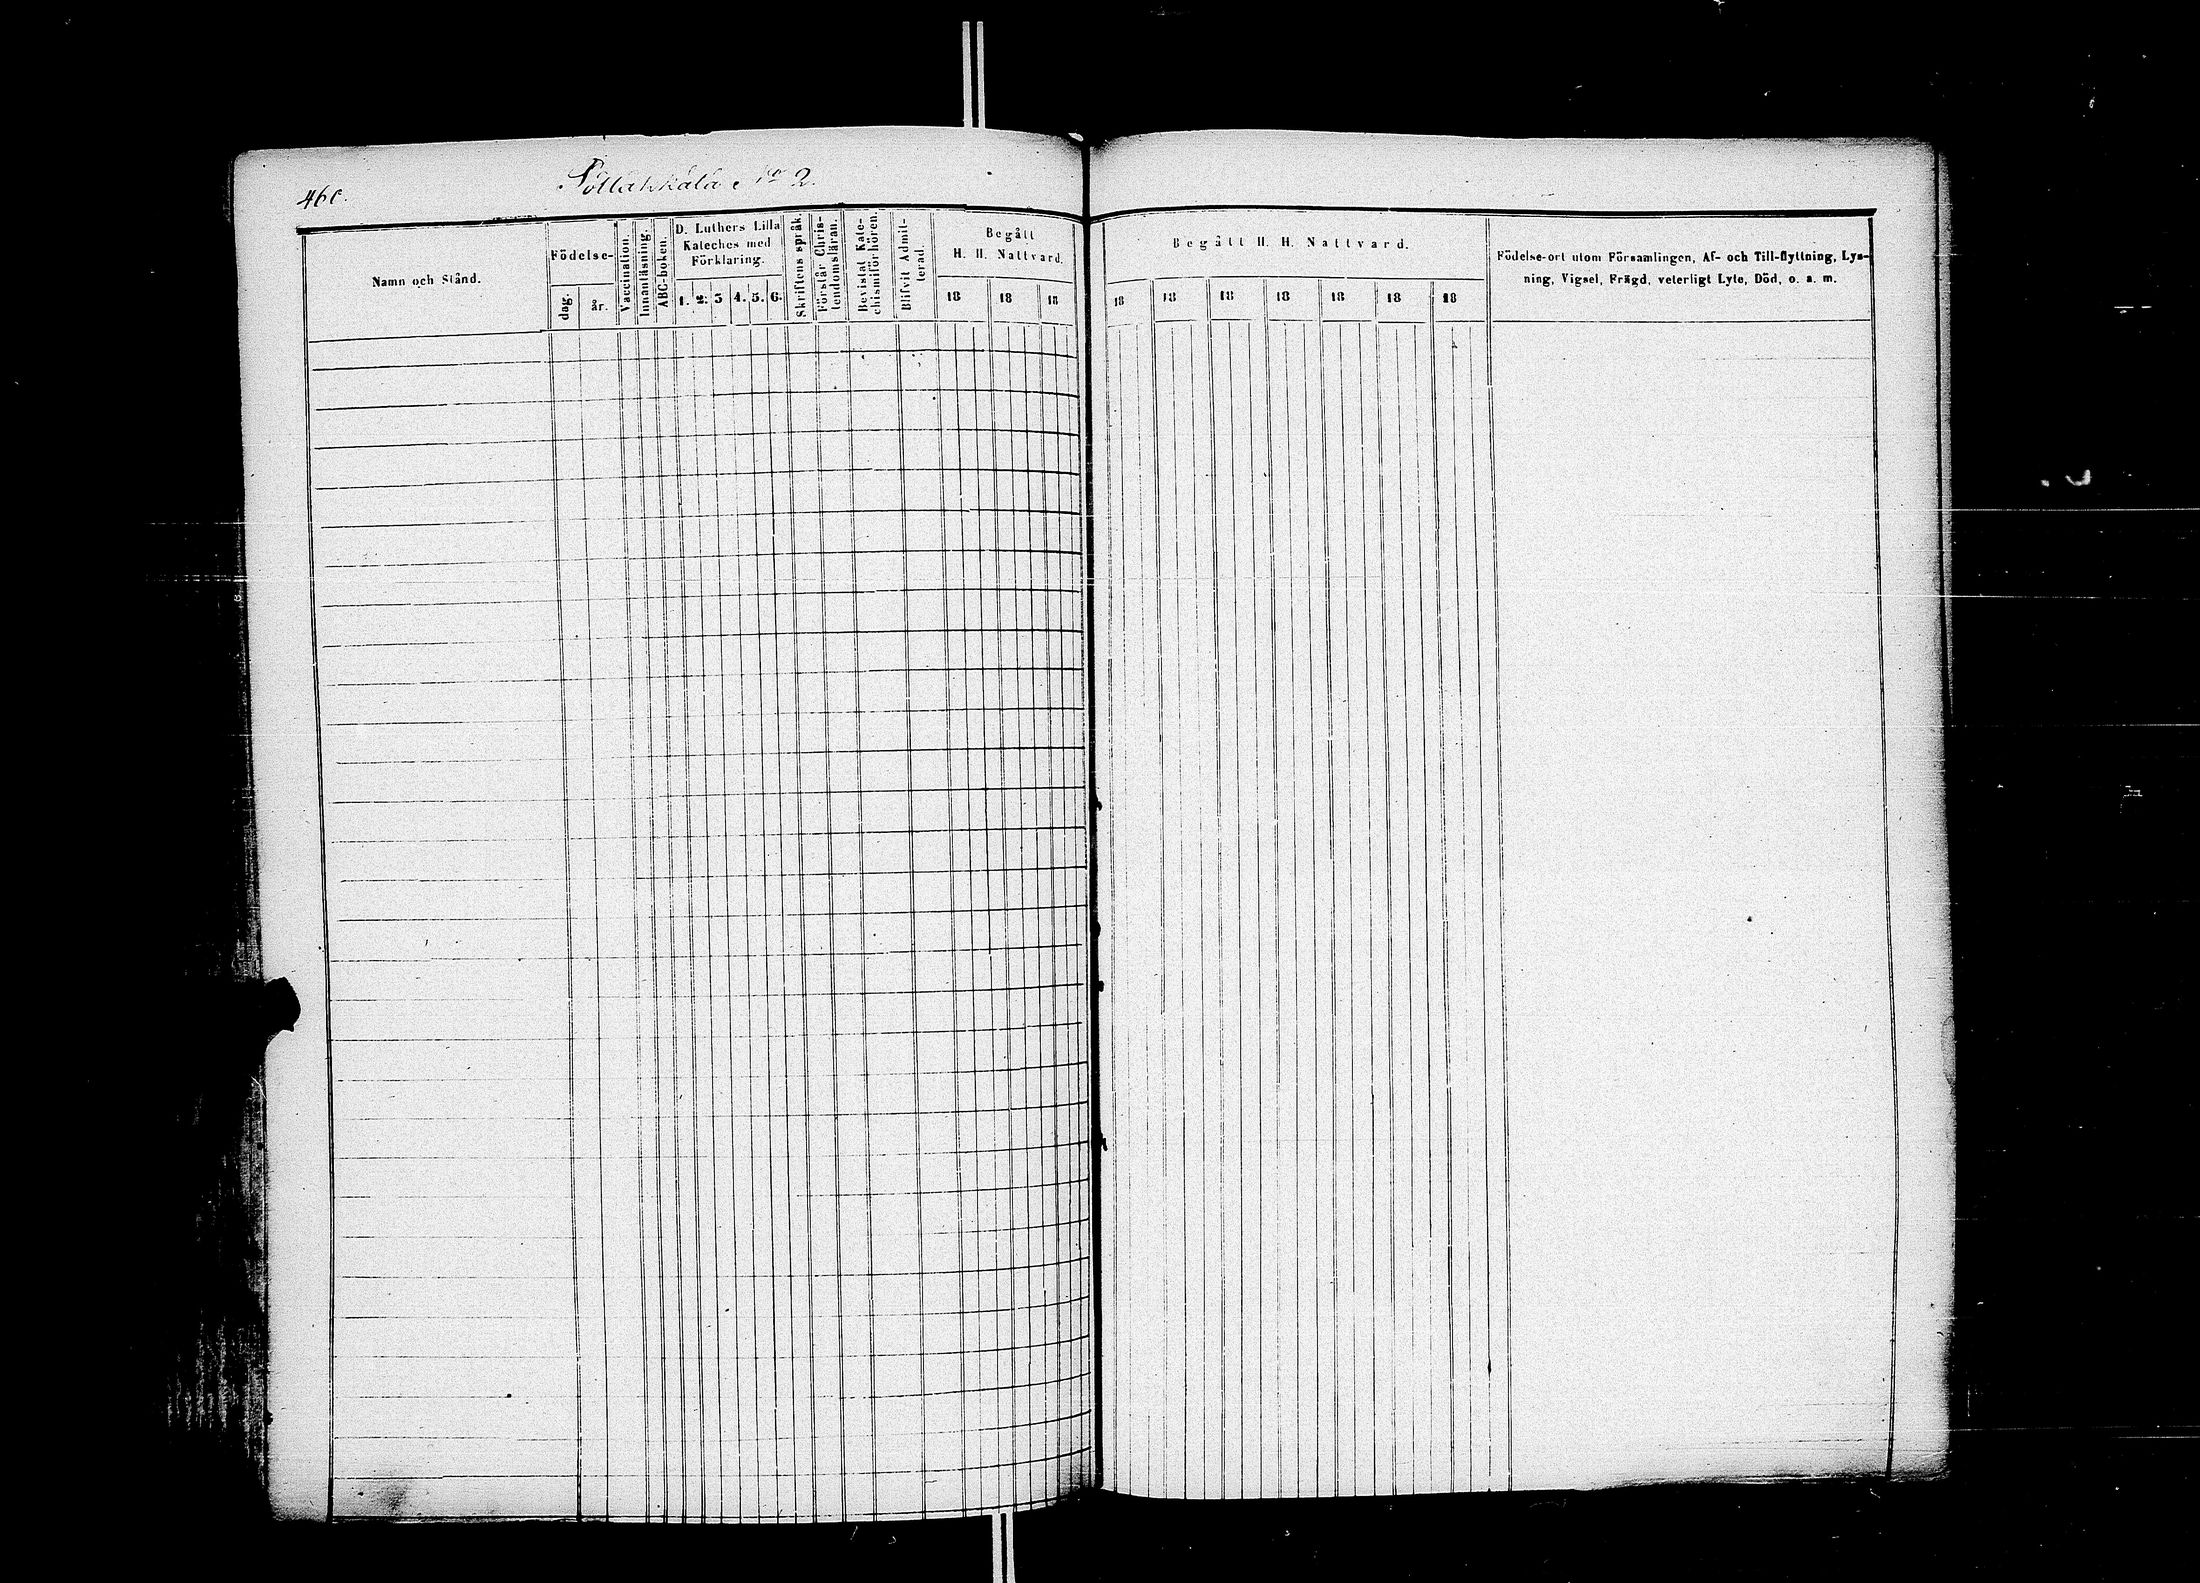 460.
Pöllakkala No 2.
Namn och Stånd.
Födelse-
dag.
år.
Vaccination.
Innanläsning.
ABC-boken.
D. Luthers Lilla
Kateches med
Förklaring.
1. 2. 3 4. 5. 6.
Skriftens språk.
Förstår Chris-
tendomsläran.
Bevistat Kate-
chismiförhören.
Blifvit Admit-
terad.
Begått
H. H. Nattvard.
18 18 18
Begått H. H. Nattvard.
18 18 18 18 18 18 18
Födelse-ort utom Församlingen, Af- och Till-flyttning, Lys-
ning, Vigsel, Frägd, veterligt Lyte, Död, o. s. m.